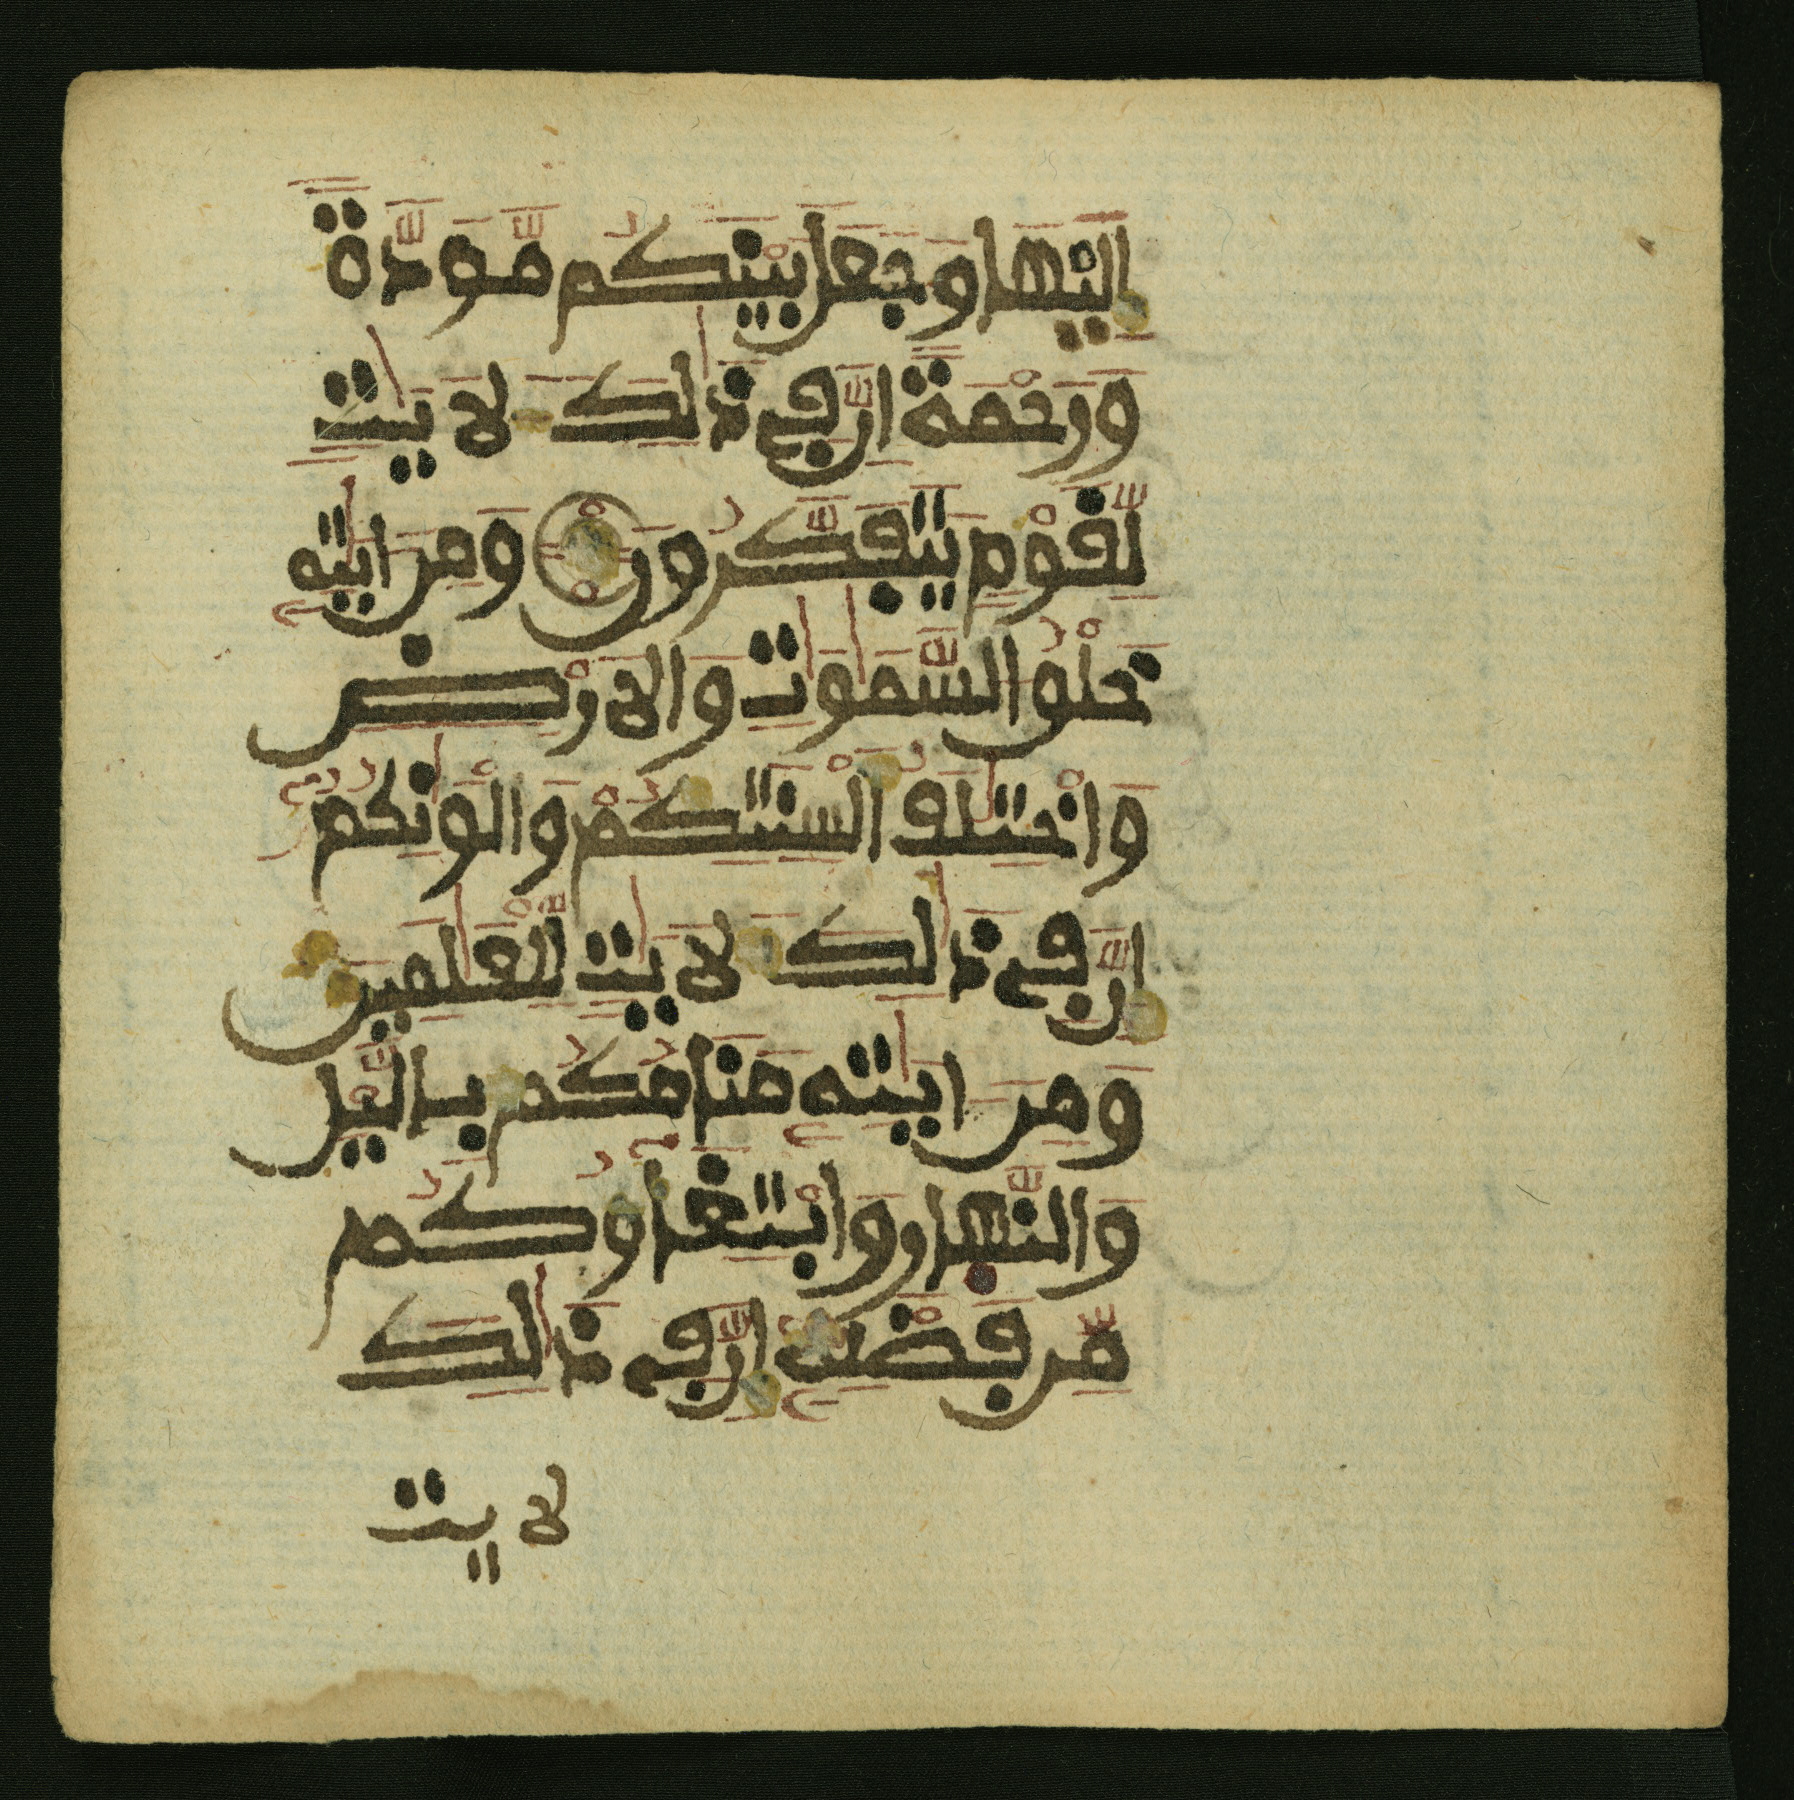 إِلَيْهَا وَجَعَلَ بَيْنَكُم مَّوَدَّةً
وَرَحْمَةً اِنَّ فِے ذَٰلِكَ لَأَيَٰتٍ
لِّقَوْمٍ يَتَفَكَّرُونَ وَمِنَ اٰيَٰتِهِۦ
خَلْقُ السَّمَٰوَٰتِ وَالَارْضِ
وَاخْتِلَٰفُ أَلْسِنَتِكُمْ وَأَلْوَٰنِكُمُۥ
إِنَّ فِے ذَٰلِكَ لَأَيَٰتٍ لِّلْعَٰلَمِينَ
وَمِنَ اٰيَٰتِهِۦ مَنَامُكُم بِالَّيْلِ
وَالنَّهَارِ وَابْتِغَاؤُكُم
مِّن فَضْلِهِۦ إِنَّ فِے ذَٰلِكَ
لَأيت